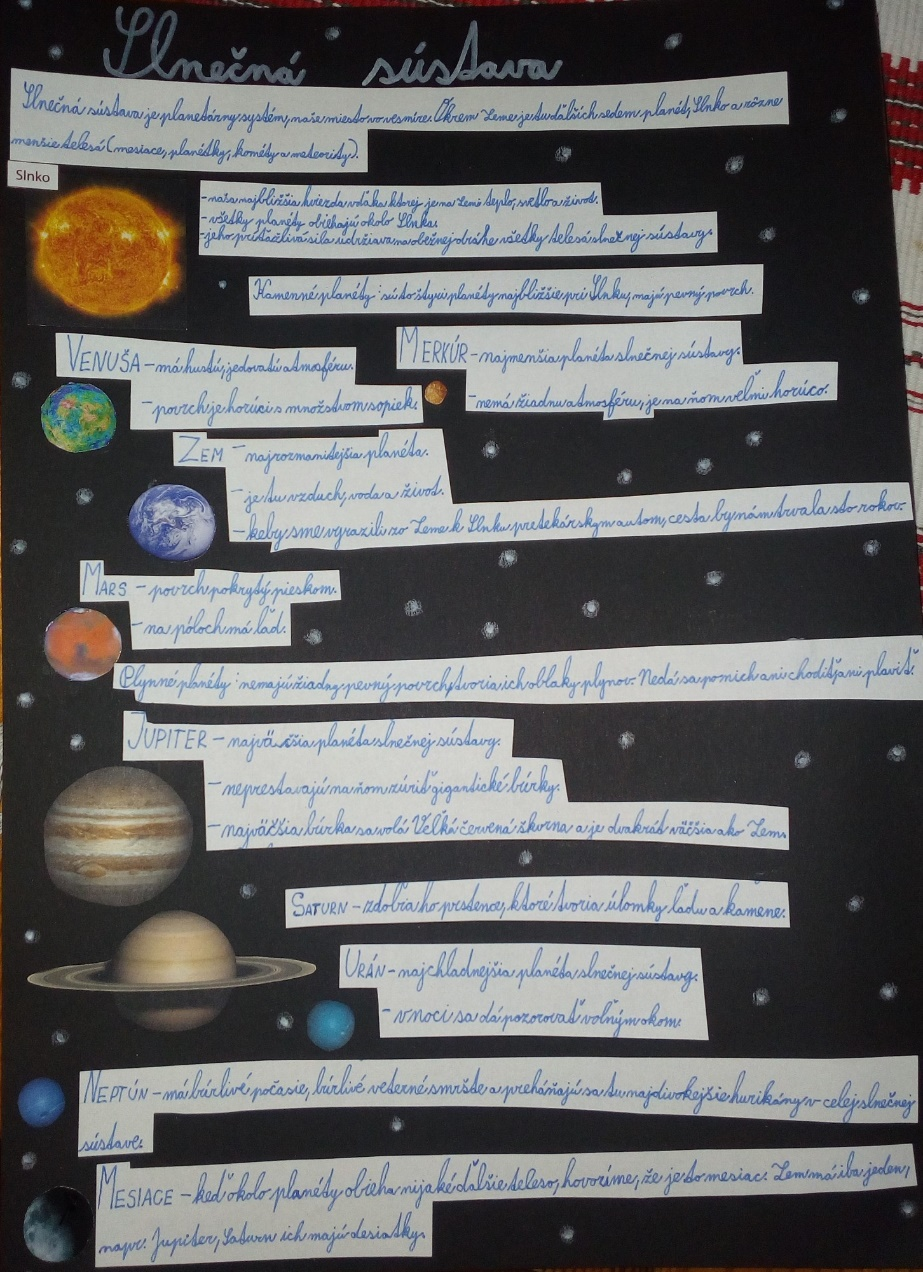 Slnečná sústava
Slnečná sústava je planetárny systém, naše miesto vo vesmíre. Okrem Zeme je tu ďalších sedem planét, Slnko a rôzne
menšie telesá (mesiace, planétky, kométy a meteority).
Slnko
- naša najbližšia hviezda vďaka ktorej je na Zemi teplo, svetlo a život.
- všetky planéty obiehajú okolo Slnka.
- jeho príťažlivá sila udržiava na obežnej dráhe všetky telesá slnečnej sústavy.
Kamenné planéty: sú to štyri planéty najbližšie pri Slnku, majú pevný povrch.
MERKÚR - najmenšia planéta slnečnej sústavy.
- nemá žiadnu atmosféru, je na ňom veľmi horúco.
VENUŠA - má hustú, jedovatú atmosféru.
- povrch je horúci s množstvom sopiek.
ZEM - najrozmanitejšia planéta.
- je tu vzduch, voda a život.
- keby sme vyrazili zo Zeme k Slnku pretekárskym autom, cesta by nám trvala sto rokov.
MARS - povrch pokrytý pieskom.
- na póloch má ľad.
Plynné planéty: nemajú žiadny pevný povrch, tvoria ich oblaky plynov. Nedá sa po nich ani chodiť, ani plaviť.
JUPITER - najväčšia planéta slnečnej sústavy.
- neprestavajú na ňom zúriť gigantické búrky.
- najväčšia búrka sa volá Veľká červená škvrna a je dvakrát väčšia ako Zem.
SATURN - zdobia ho prstence, ktoré tvoria úlomky ľadu a kamene.
URÁN - najchladnejšia planéta slnečnej sústavy.
- v noci sa dá pozorovať voľným okom.
NEPTÚN - má búrlivé počasie, búrlivé veterné smršte a preháňajú sa tu najdivokejšie hurikány v celej slnečnej
sústave.
MESIACE - keď okolo planéty obieha nijaké ďalšie teleso, hovoríme, že je to mesiac. Zem má iba jeden,
napr. Jupiter, Saturn ich majú desiatky.